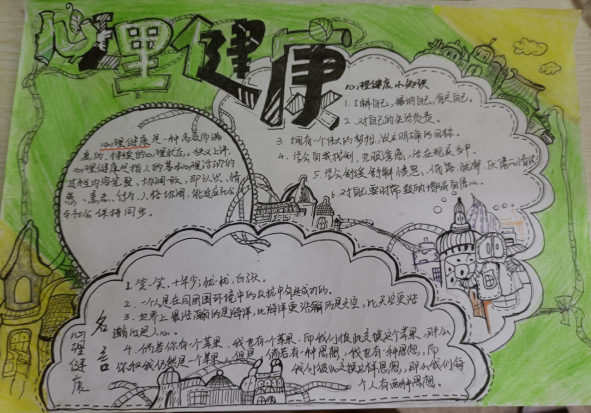 心理健康
心理健康是一种高效而满
意的、持续的心理状态。狭义上讲,
心理健康是指人的基本心理活动的
过程内容完整、协调一致,即认识、情
感、意志、行为、人格协调,能适应社会
与社会保持同步。
心理健康小知识
1. 了解自己,接纳自己,肯定自己。
2. 对自己的生活负责。
3. 拥有一个伟大的梦想,设立明确的目标。
4. 学会自我控制,克服焦虑,活在现在当中。
5. 学会舒缓
6. 对自己
心理健康
名言
1. 笑一笑,十年少;愁一愁,白了头。
2. 一个人是在同周围环境中的反抗中
3. 世界上最浩瀚的是海洋,比海洋更浩瀚的是天空,比天空更浩
瀚的是人心。
4. 倘若你有一个苹果,我也有一个苹果,而我们彼此交换这个苹果,那么
你和我仍然是一个苹果。但是,倘若有一种思想,我也有一种思想,而
我们彼此交换这样思想,那么我们每
个人有两种思想。